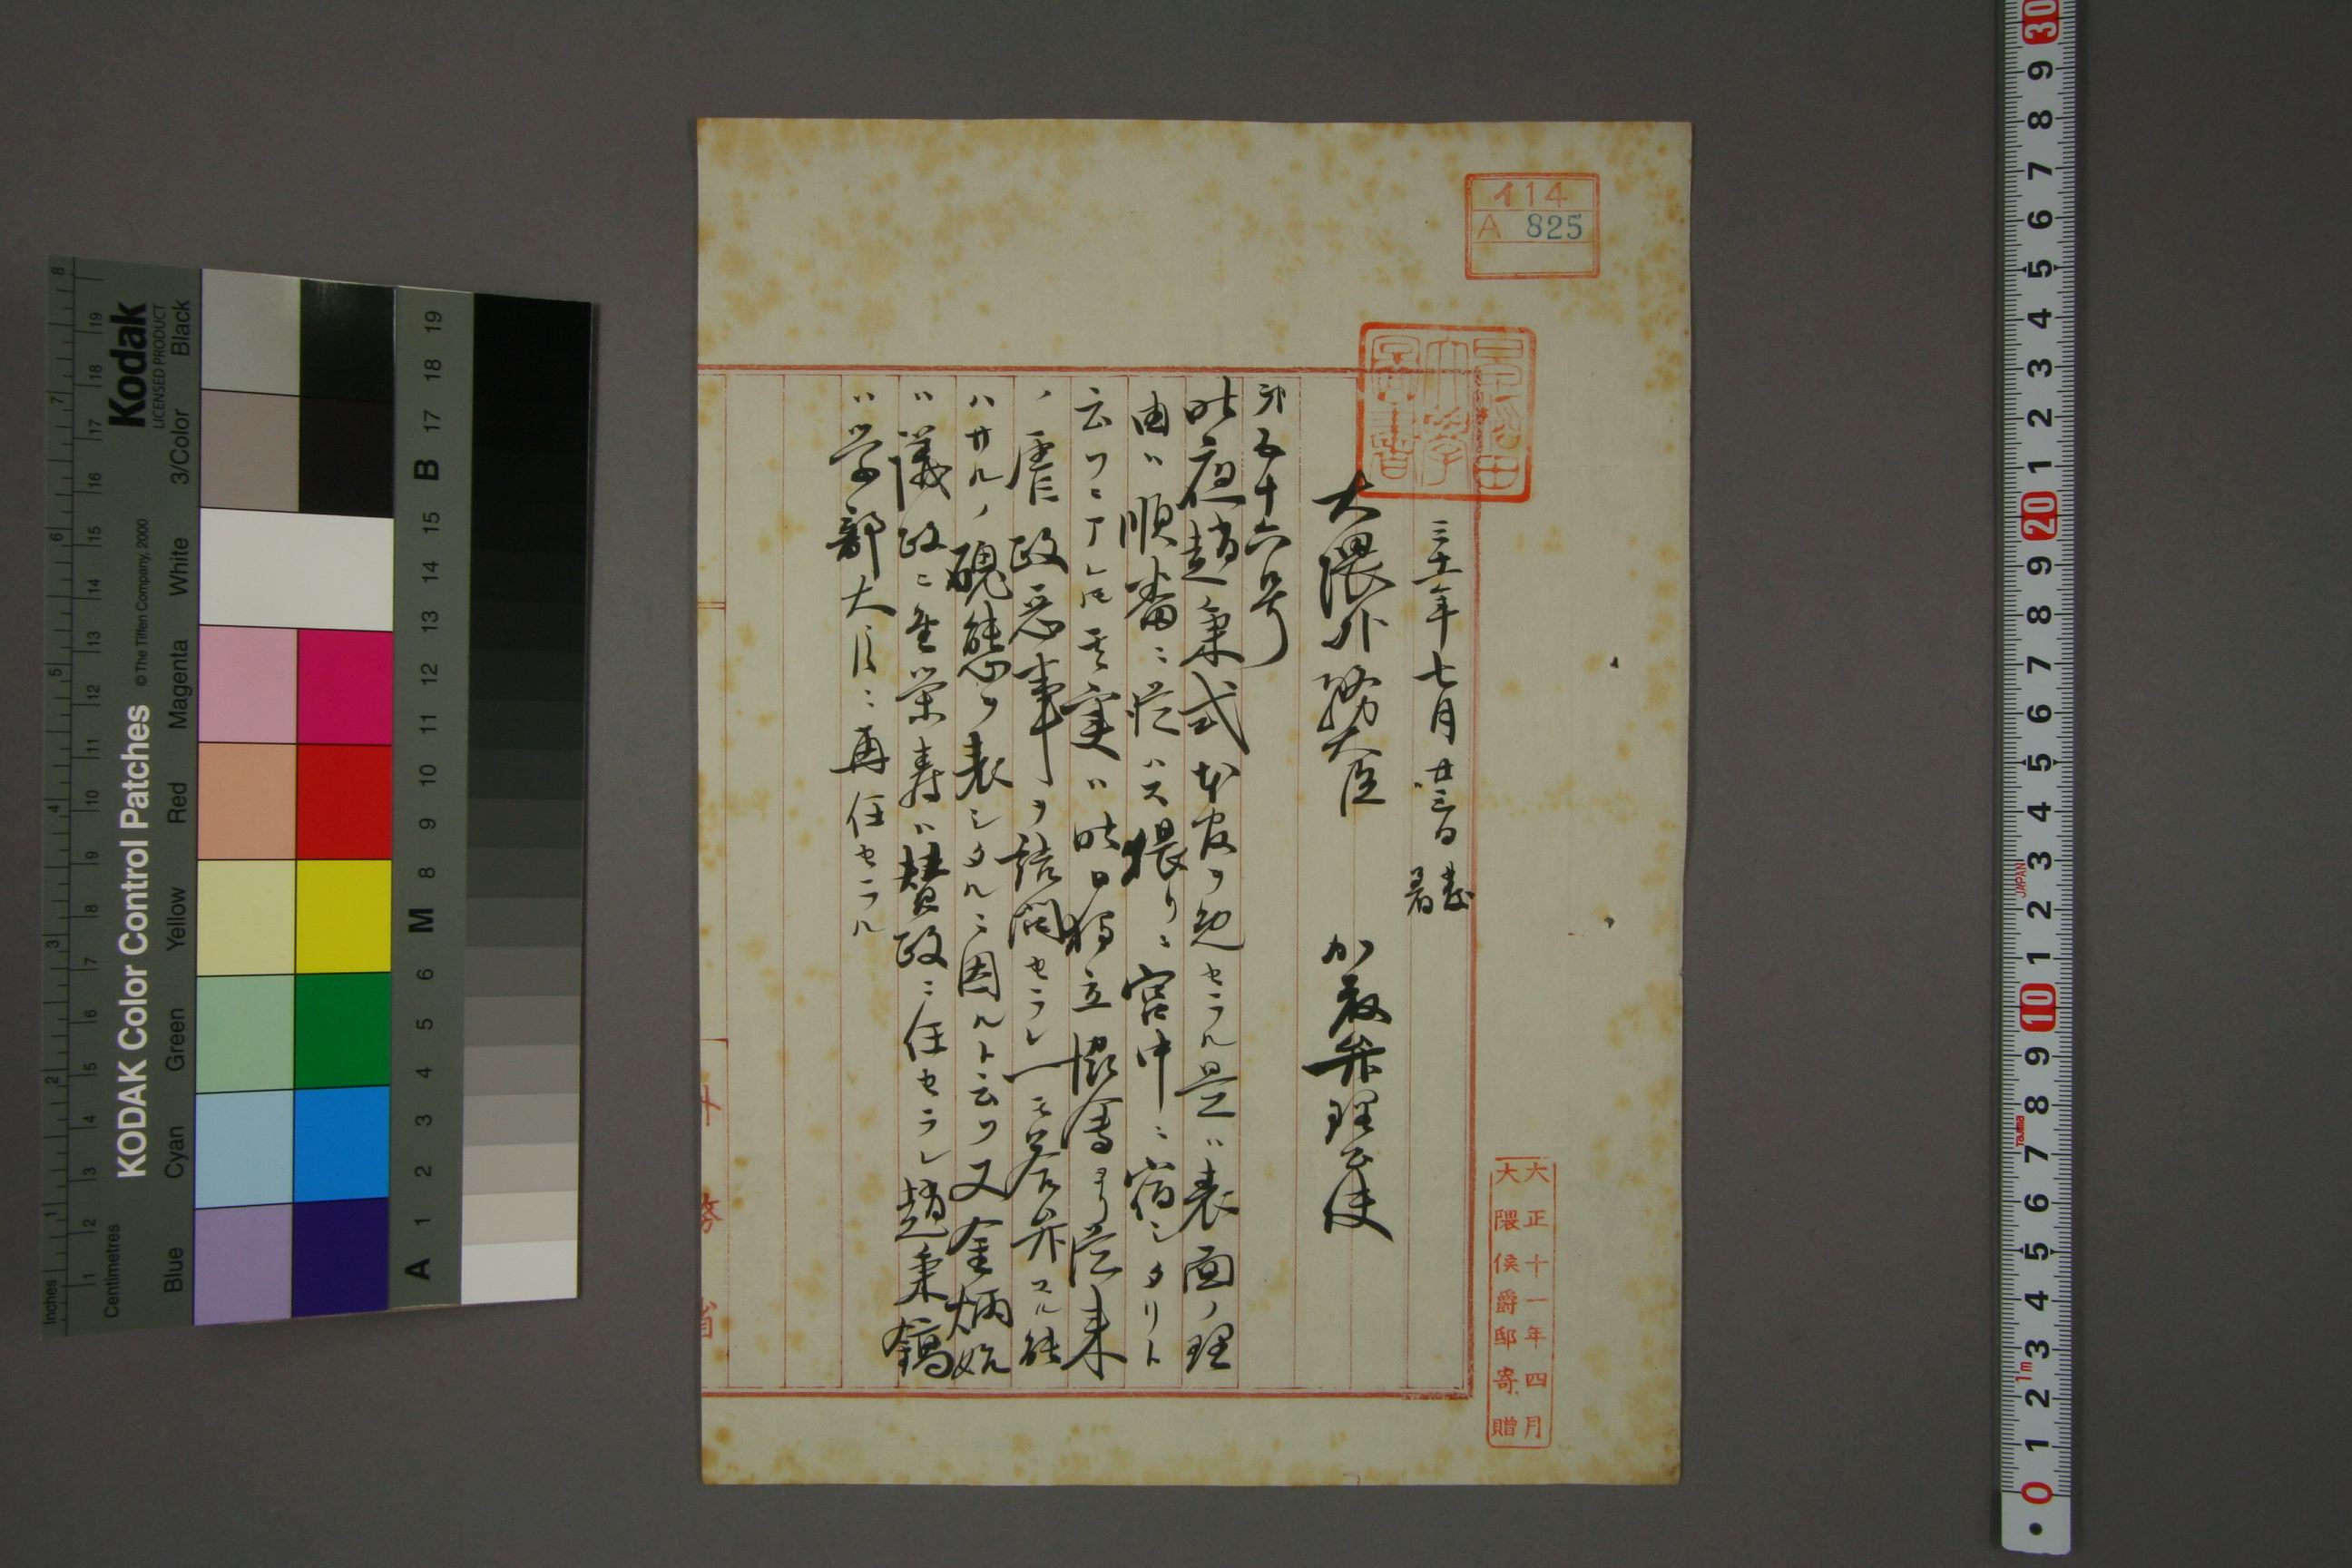 イ14
A 825
早稲田
大学
図書
三十一年七月廿三日 発
着
大隈外務大臣 加藤弁理公使
第五十六号
昨夜趙秉式本官ヲ免セラル是ハ表面ノ理
由ハ順番ニ従ハス猥リニ宮中ニ宿シタリト
云フニアレ𪜈其実ハ昨日独立協会ヨリ従来
ノ虐政悪事ヲ詰問セラレ一モ答弁スル能
ハサルノ醜態ヲ表シタルニ因ルト云フ又金炳始
ハ議政ニ金栄寿ハ賛政ニ任セラレ趙秉鎬
ハ学部大臣ニ再任セラル
外務省
大正十一年四月
大隈侯爵邸寄贈
Kodak
LICENSED PRODUCT
KODAK Color Control Patches
© The Tiffen Company, 2000
Blue Cyan Green Yellow Red Magenta White 3/Color Black
Inches 1 2 3 4 5 6 7 8
Centimetres 1 2 3 4 5 6 7 8 9 10 11 12 13 14 15 16 17 18 19
A 1 2 3 4 5 6 M 8 9 10 11 12 13 14 15 B 17 18 19
30 9 8 7 6 5 4 3 2 1 20 9 8 7 6 5 4 3 2 1 10 9 8 7 6 5 4 3 2 1 0
JAPAN
Tajima
1m